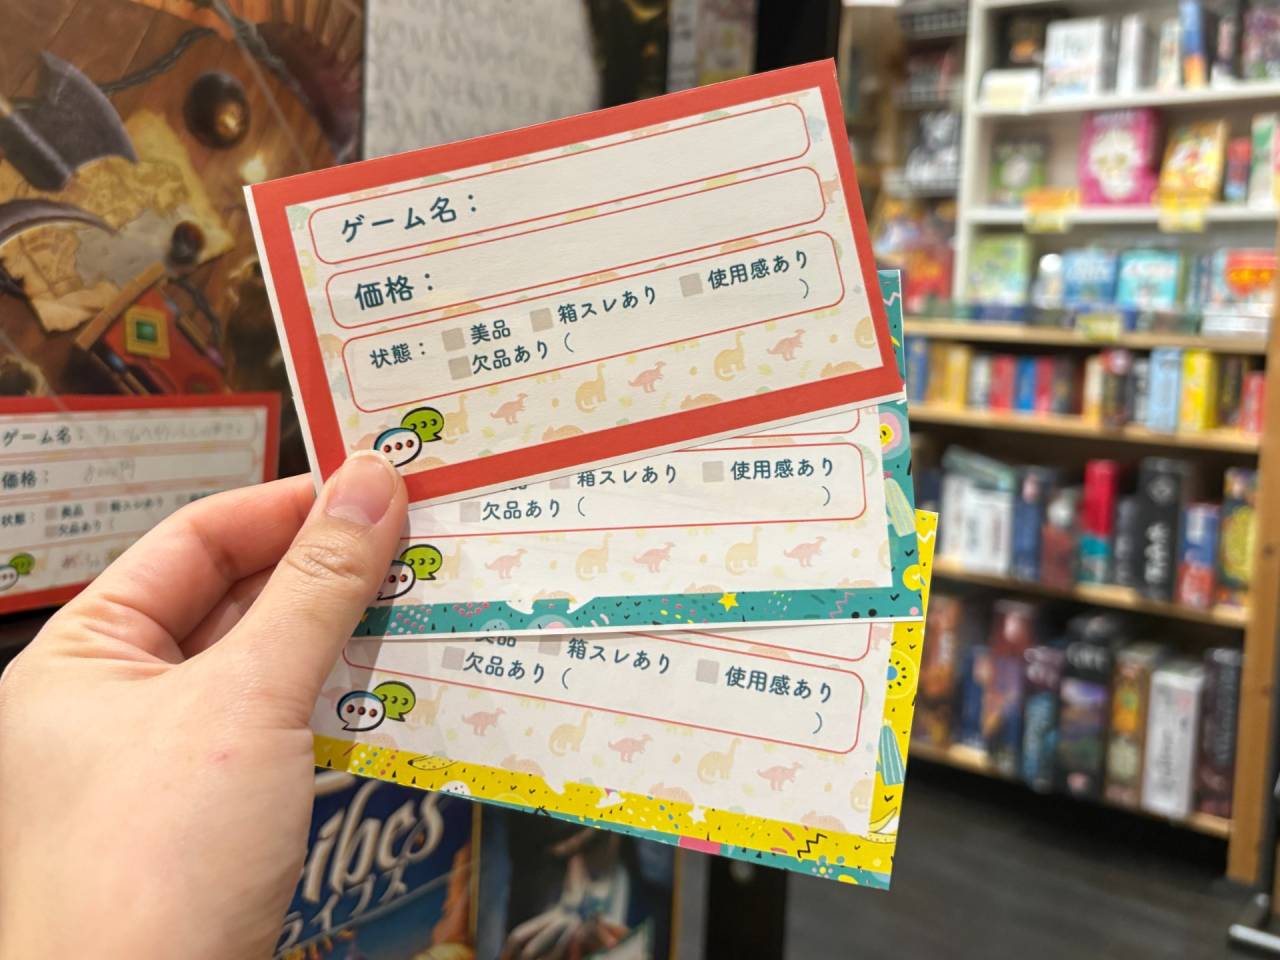 ゲーム名：
価格：
状態： 美品 箱スレあり 使用感あり
欠品あり（ ）
箱スレあり 使用感あり
欠品あり（ ）
美品 箱スレあり 使用感あり
欠品あり（ ）
ゲーム名：
価格：
状態： 美品 箱スレあり
欠品あり（
ibes
ライブス